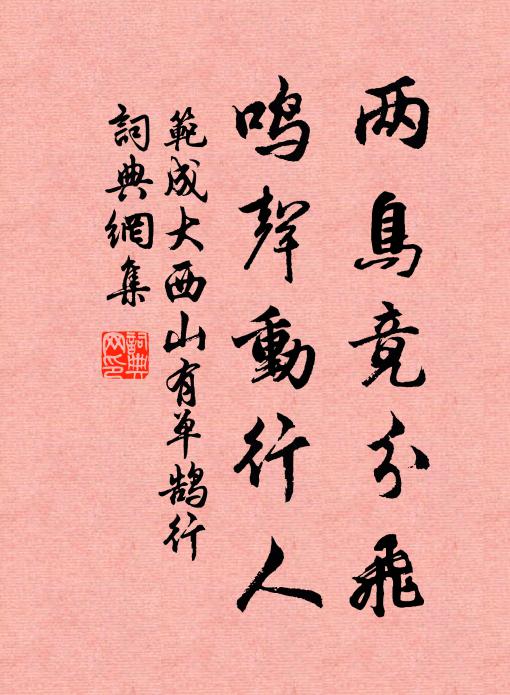 两鳥竞分飛
鳴聲動行人
範成大西山有单鹄行
詞典網集
詞典网印